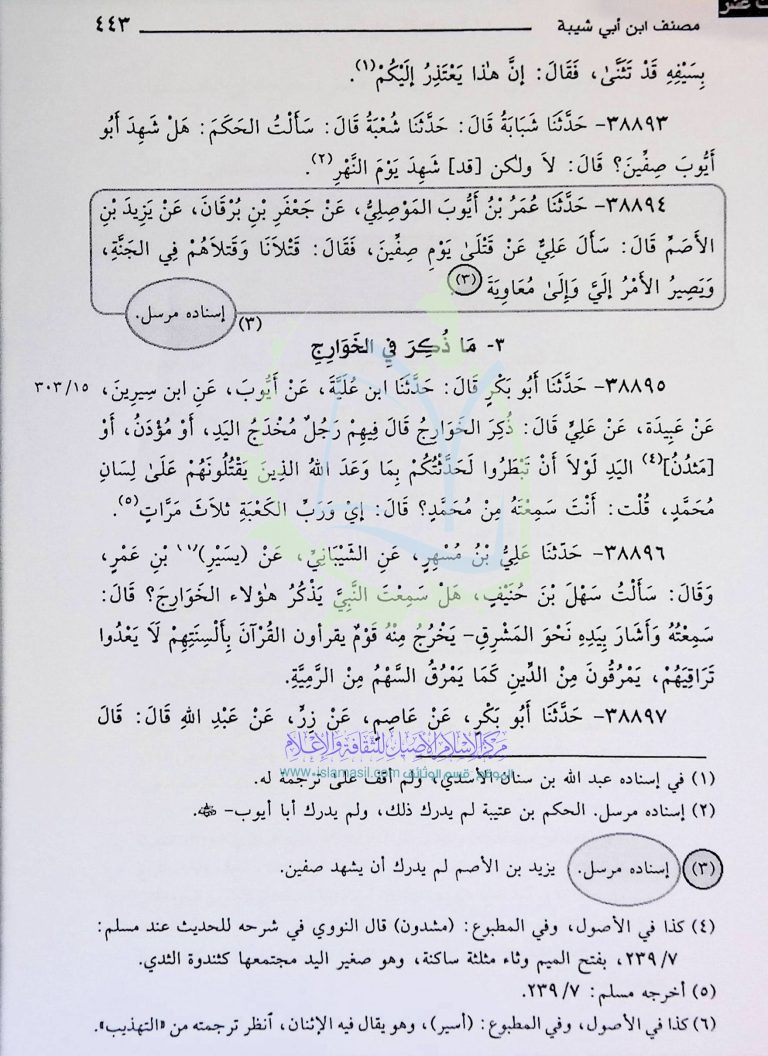 مصنف ابن أبي شيبة ٤٤٣
بِسَيْفِهِ قَدْ تَثَنَّىٰ، فَقَالَ: إنَّ هٰذا يَعْتَذِرُ إلَيْكُمْ(١).
٣٨٨٩٣- حَدَّثَنَا شَبَابَةُ قَالَ: حَدَّثَنَا شُعْبَةُ قَالَ: سَأَلْتُ الحَكَمَ: هَلْ شَهِدَ أَبُو
أَيُّوبَ صِفِّينَ؟ قَالَ: لاَ ولكن [قد] شَهِدَ يَوْمَ النَّهْرِ(٢).
٣٨٨٩٤- حَدَّثَنَا عُمَرُ بْنُ أَيُّوبَ المَوْصِلِيُّ، عَنْ جَعْفَرِ بْنِ بُرْقَانَ، عَنْ يَزِيدَ بْنِ
الأَصَمِّ قَالَ: سَأَلَ عَلِيٌّ عَنْ قَتْلَىٰ يَوْمِ صِفِّينَ، فَقَالَ: قَتْلاَنَا وَقَتْلاَهُمْ فِي الجَنَّةِ،
وَيَصِيرُ الأَمْرُ إلَيَّ وَإِلَىٰ مُعَاوِيَةَ(٣).
(٣) إسناده مرسل.
٣- مَا ذُكِرَ فِي الخَوَارِجِ
٣٨٨٩٥- حَدَّثَنَا أَبُو بَكْرٍ قَالَ: حَدَّثَنَا ابن عُلَيَّةَ، عَنْ أَيُّوبَ، عَنِ ابن سِيرِينَ، ٣٠٣/١٥
عَنْ عَبِيدَة، عَنْ عَلِيٍّ قَالَ: ذُكِرَ الخَوَارِجُ قَالَ فِيهِمْ رَجُلٌ مُخْدَجُ اليَدِ، أَوْ مُؤْدَنُ، أَوْ
[مَثدُنُ](٤) اليَدِ لَوْلاَ أَنْ تَبْطَرُوا لَحَدَّثْتُكُمْ بِمَا وَعَدَ اللهُ الذِينَ يَقْتُلُونَهُمْ عَلَىٰ لِسَانِ
مُحَمَّدٍ، قُلْت: أَنْتَ سَمِعْتَهُ مِنْ مُحَمَّدٍ؟ قَالَ: إيْ وَرَبِّ الكَعْبَةِ ثلاَثَ مَرَّاتٍ(٥).
٣٨٨٩٦- حَدّثنَا عَلِيُّ بْنُ مُسْهِرٍ، عَنِ الشَّيْبَانِيِّ، عَنْ (يسَيْرِ) بْنِ عَمْرٍ،
وَقَالَ: سَأَلْتُ سَهْلَ بْنَ حُنَيْفٍ، هَلْ سَمِعْتَ النَّبِيَّ يَذْكُرُ هؤلاء الخَوَارِجَ؟ قَالَ:
سَمِعْتُهُ وَأَشَارَ بِيَدِهِ نَحْوَ المَشْرِقِ- يَخْرُجُ مِنْهُ قَوْمٌ يقرأون القُرْآنَ بِأَلْسِنَتِهِمْ لَا يَعْدُوا
تَرَاقِيَهُمْ، يَمْرُقُونَ مِنْ الدِّينِ كَمَا يَمْرُقُ السَّهْمُ مِنْ الرَّمِيَّةِ.
٣٨٨٩٧- حَدَّثَنَا أَبُو بَكْرٍ، عَنْ عَاصِمٍ، عَنْ زِرٍّ، عَنْ عَبْدِ اللهِ قَالَ: قَالَ
مركز الإسلام الأصيل للثقافة والإعلام
الموقع: قسم الوثائق www.islamasil.com
(١) في إسناده عبد الله بن سنان الأسدي، ولم أقف على ترجمة له.
(٢) إسناده مرسل. الحكم بن عتيبة لم يدرك ذلك، ولم يدرك أبا أيوب- ﷺ.
(٣) إسناده مرسل. يزيد بن الأصم لم يدرك أن يشهد صفين.
(٤) كذا في الأصول، وفي المطبوع: (مشدون) قال النووي في شرحه للحديث عند مسلم:
٢٣٩/٧، بفتح الميم وثاء مثلثة ساكنة، وهو صغير اليد مجتمعها كثندوة الثدي.
(٥) أخرجه مسلم: ٢٣٩/٧.
(٦) كذا في الأصول، وفي المطبوع: (أسير)، وهو يقال فيه الإثنان، أنظر ترجمته من «التهذيب».